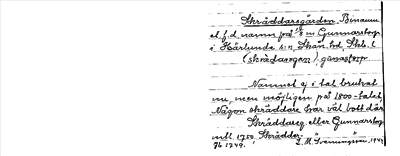 Skräddaregården. Binamn
el. f.d. namn på 1/8 m Gunnarstorp
i Härlunda s:n, Skån. hd, Skb. l.
(skrädaregan), gunastorp
Namnet ej i tal brukat
nu, men möjligen på 1800-talet.
Någon skräddare har väl bott där
Skräddareg. eller Gunnarstorp
mtl. 1750. Skräddar-
Jb 1749. L.M. "Svenungsson" 1944